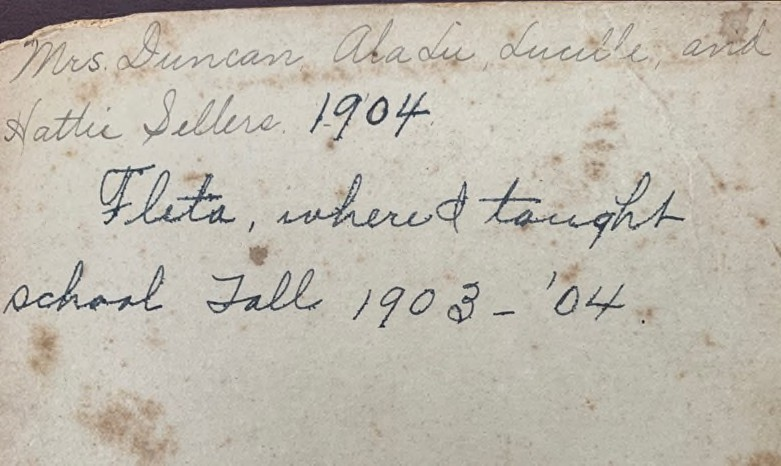 Mrs. Duncan Ala Lu, Lucille, and
Hattie Sellers. 1904
Fleta, where I taught
school Fall 1903 - '04.